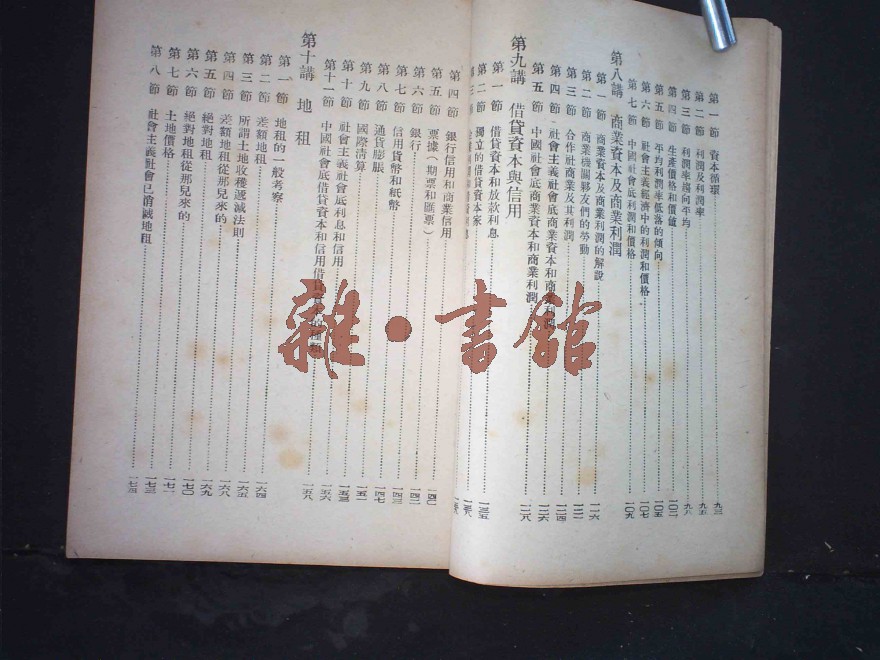 第一節 資本循環 九三
第二節 利潤及利潤率 九五
第三節 利潤率趨向平均 九八
第四節 生產價格和價值 一〇二
第五節 平均利潤率低落的傾向 一〇五
第六節 社會主義經濟中的利潤和價格 一〇七
第七節 中國社會底利潤和價格 一〇九
第八講 商業資本及商業利潤
第一節 商業資本及商業利潤的解說 一一六
第二節 商業機關夥友們的勞動
第三節 合作社商業及其利潤
第四節 社會主義社會底商業資本和商業利潤 一二四
第五節 中國社會底商業資本和商業利潤 一二八
第九講 借貸資本與信用
第一節 借貸資本和放款利息 一三五
第二節 獨立的借貸資本家
第三節
第四節 銀行信用和商業信用 一四〇
第五節 票據(期票和匯票)
第六節 銀行 一四二
第七節 信用貨幣和紙幣 一四三
第八節 通貨膨脹 一四七
第九節 國際清算 一五一
第十節 社會主義社會底利息和信用 一五三
第十一節 中國社會底借貸資本和信用借貸資本的 一五六
第十講 地租 一五八
第一節 地租的一般考察
第二節 差額地租 一六四
第三節 所謂土地收穫遞減法則 一六五
第四節 差額地租從那兒來的 一六八
第五節 絕對地租 一六九
第六節 絕對地租從那兒來的 一七〇
第七節 土地價格 一七一
第八節 社會主義社會已消滅地租 一七三
雜·書館